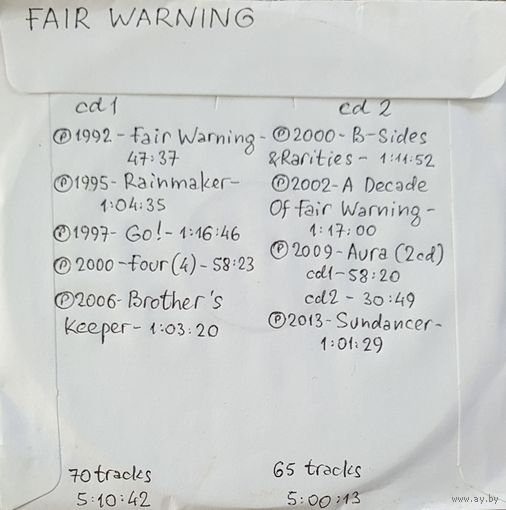 FAIR WARNING
cd 1
℗1992 - Fair Warning -
47:37
℗1995 - Rainmaker -
1:04:35
℗1997 - Go! - 1:16:46
℗2000 - Four (4) - 58:23
℗2006 - Brother's
Keeper - 1:03:20
70 tracks
5:10:42
cd 2
℗2000 - B-Sides
&Rarities - 1:11:52
℗2002 - A Decade
Of Fair Warning -
1:17:00
℗2009 - Aura (2cd)
cd1 - 58:20
cd2 - 30:49
℗2013 - Sundancer -
1:01:29
65 tracks
5:00:13
www.ay.by